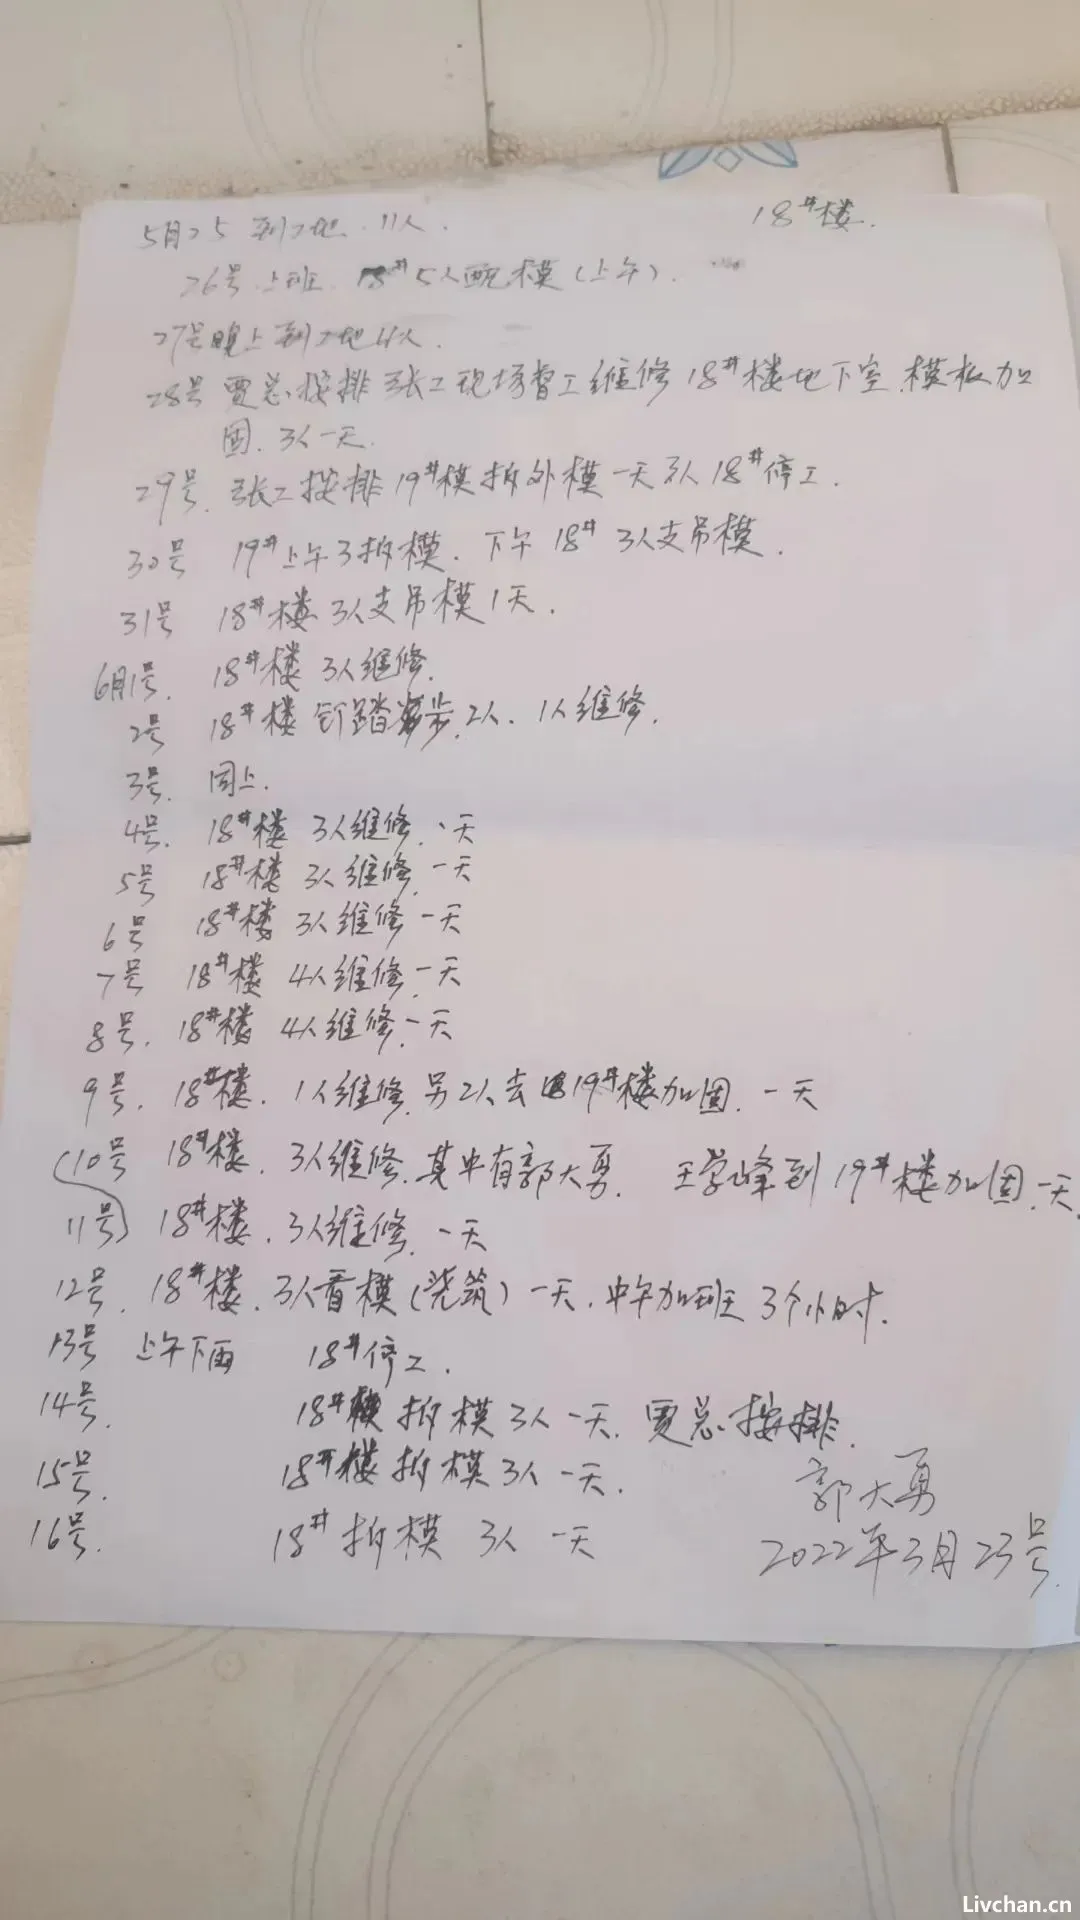 18#楼.
5月25 到工地.11人.
26号.上班. 18# 5人配模(上午).
27号晚上到工地4人.
28号 贾总按排张工现场督工维修18#楼地下室.模板加
固.3人一天.
29号.张工按排19#模拆外模一天3人18#停工.
30号 19#上午3拆模.下午18# 3人支吊模.
31号 18#楼3人支吊模1天.
6月1号. 18#楼 3人维修.
2号 18#楼 钉踏步.2人、1人维修.
3号. 同上.
4号. 18#楼 3人维修.一天
5号 18#楼 3人维修.一天
6号 18#楼 3人维修一天
7号 18#楼 4人维修.一天
8号. 18#楼 4人维修.一天
9号. 18#楼. 1人维修.另2人去19#楼加固. 一天
(10号 18#楼. 3人维修.其中有郭大勇. 王学峰到19#楼加固.一天.
11号) 18#楼.3人维修. 一天
12号. 18#楼.3人看模(浇筑)一天.中午加班3个小时.
13号 上午下雨 18#停工.
14号. 18#楼拆模3人一天.贾总按排.
15号. 18#楼拆模3人一天.
郭大勇
16号. 18#拆模 3人 一天
2022年3月23号.
Livchan.cn